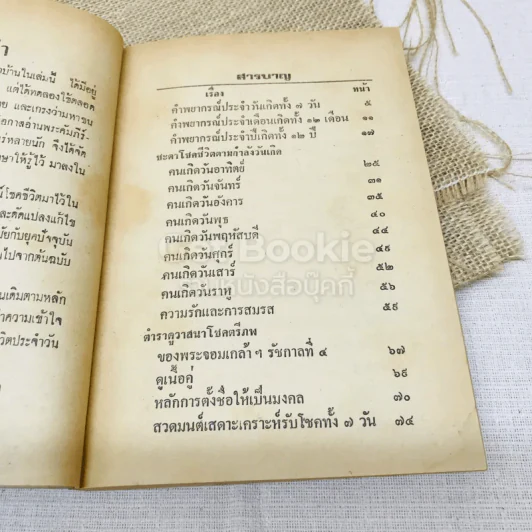 า
บ้านในเล่มนี้ ได้มีอยู่
แต่ได้ทดลองใช้ตลอด
ย และเกรงว่ามหาชน
กาลอ่านพระคัมภีร์
ร่หลายนัก จึงได้จัด
ษาให้รู้ไว้ มาลงใน
โชคชีวิตมาไว้ใน
ละดัดแปลงแก้ไข
ยกับยุคปัจจุบัน
ไปจากต้นฉบับ
นเดิมตามหลัก
าความเข้าใจ
วิตประจำวัน
สารบาญ
เรื่อง หน้า
คำพยากรณ์ประจำวันเกิดทั้ง ๗ วัน ๕
คำพยากรณ์ประจำเดือนเกิดทั้ง ๑๒ เดือน ๑๑
คำพยากรณ์ประจำปีเกิดทั้ง ๑๒ ปี ๑๗
ชะตาโชคชีวิตตามกำลังวันเกิด
คนเกิดวันอาทิตย์ ๒๕
คนเกิดวันจันทร์ ๓๑
คนเกิดวันอังคาร ๓๕
คนเกิดวันพุธ ๔๐
คนเกิดวันพฤหัสบดี ๔๔
คนเกิดวันศุกร์ ๔๙
คนเกิดวันเสาร์ ๕๒
คนเกิดวันราหู ๕๖
ความรักและการสมรส ๕๙
ตำราดูวาสนาโชคตรีภพ
ของพระจอมเกล้า ฯ รัชกาลที่ ๔ ๖๗
ดูเนื้อคู่ ๖๙
หลักการตั้งชื่อให้เป็นมงคล ๗๐
สวดมนต์เสดาะเคราะห์รับโชคทั้ง ๗ วัน ๗๔
Bookie
หนังสือบุ๊คกี้